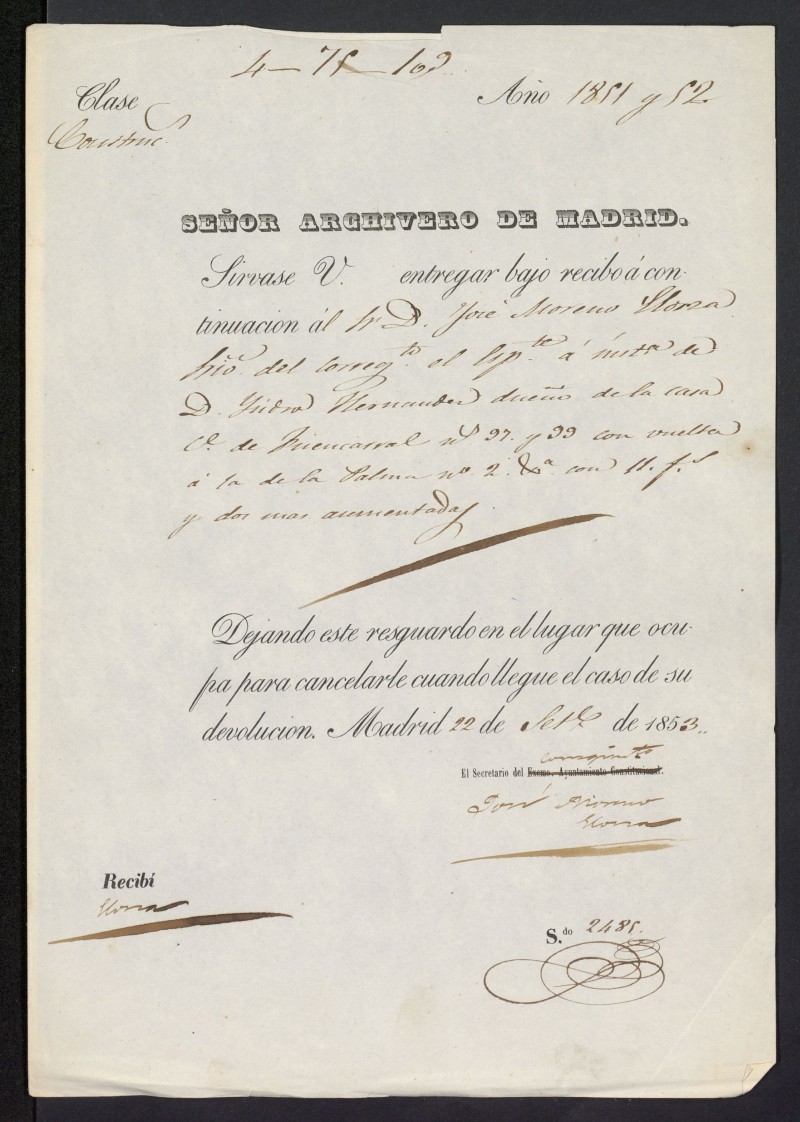 4-75-103
Clase
Construc.
Año 1851 y 52.
SEÑOR ARCHIVERO DE MADRID.
Sirvase V. entregar bajo recibo á con-
tinuacion ál Sr. D. José Moreno Elorza
Srio. del Correg.to el Esp.te á inst.a de
D. Isidro Hernandez dueño de la casa
C.e de Fuencarral n.s 97. y 99 con vuelta
á la de la Palma n.º 2. &a. con 11. f.s
y dos mas aumentadas
Dejando este resguardo en el lugar que ocu-
pa para cancelarle cuando llegue el caso de su
devolucion. Madrid 22 de Set.e de 1853..
corregim.to
El Secretario del Excmo. Ayuntamiento Constitucional.
José Moreno
Elorza
Recibí
Elorza
S.do 2485.